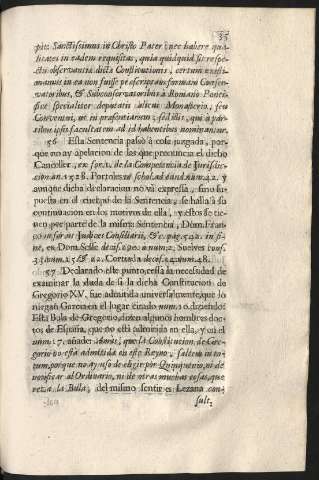 35
pit: Sanctissimus in Christo Pater: nec habere qua-
litates in eadem requisitas, quia quidquid sit respe-
ctu observantiæ dictæ Constitutionis, certum existi-
mamus in ea non fuisse præscriptam formam Conser-
vatoribus, & Subconservatoribus à Romano Ponti-
fice specialiter deputatis alicui Monasterio, seu
Conventui, ut in præsentiarum, sed illis, qui à par-
tibus ipsis facultatem ad id habentibus nominantur.
56 Esta Sentencia passò à cosa juzgada, por-
que no ay apelacion de las que pronuncia el dicho
Canceller, ex for. 1. de la Competencia de Jurisdic-
cion an. 1528. Portoles in schol. ad eand. num. 42. y
aunque dicha declaracion no và expressa, sino su-
puesta en el cuerpo de la Sentencia, se halla à su
continuacion en los motivos de ella, y estos se tie-
nen por parte de la misma Sentencia, Dom. Fran-
co in foræ Iudices Consiliarii, &c. pag. 542. in fi-
ne, ex Dom. Sesse decis. 020. à num. 2. Suelves cons.
34. num. 15. & 22. Cortiada decis. 4. num. 48.
57 Declarado este punto, cessa la necessidad de
examinar la duda de si la dicha Constitucion de
Gregorio XV. fue admitida universalmente, que lo
niegan Garcena en el lugar citado num. 16. diziendo:
Esta Bula de Gregorio, dizen algunos hombres doc-
tos de España, que no està admitida en ella, y en el
num. 17. añade: Ahora, que la Constitucion de Gre-
gorio no està admitida en este Reyno, saltem in to-
tum, porque no ay uso de elegir por Quinquenio, ni de
notificar al Ordinario, ni de otras muchas cosas, que
reza la Bula, del mismo sentir es Lezana con-
sult.